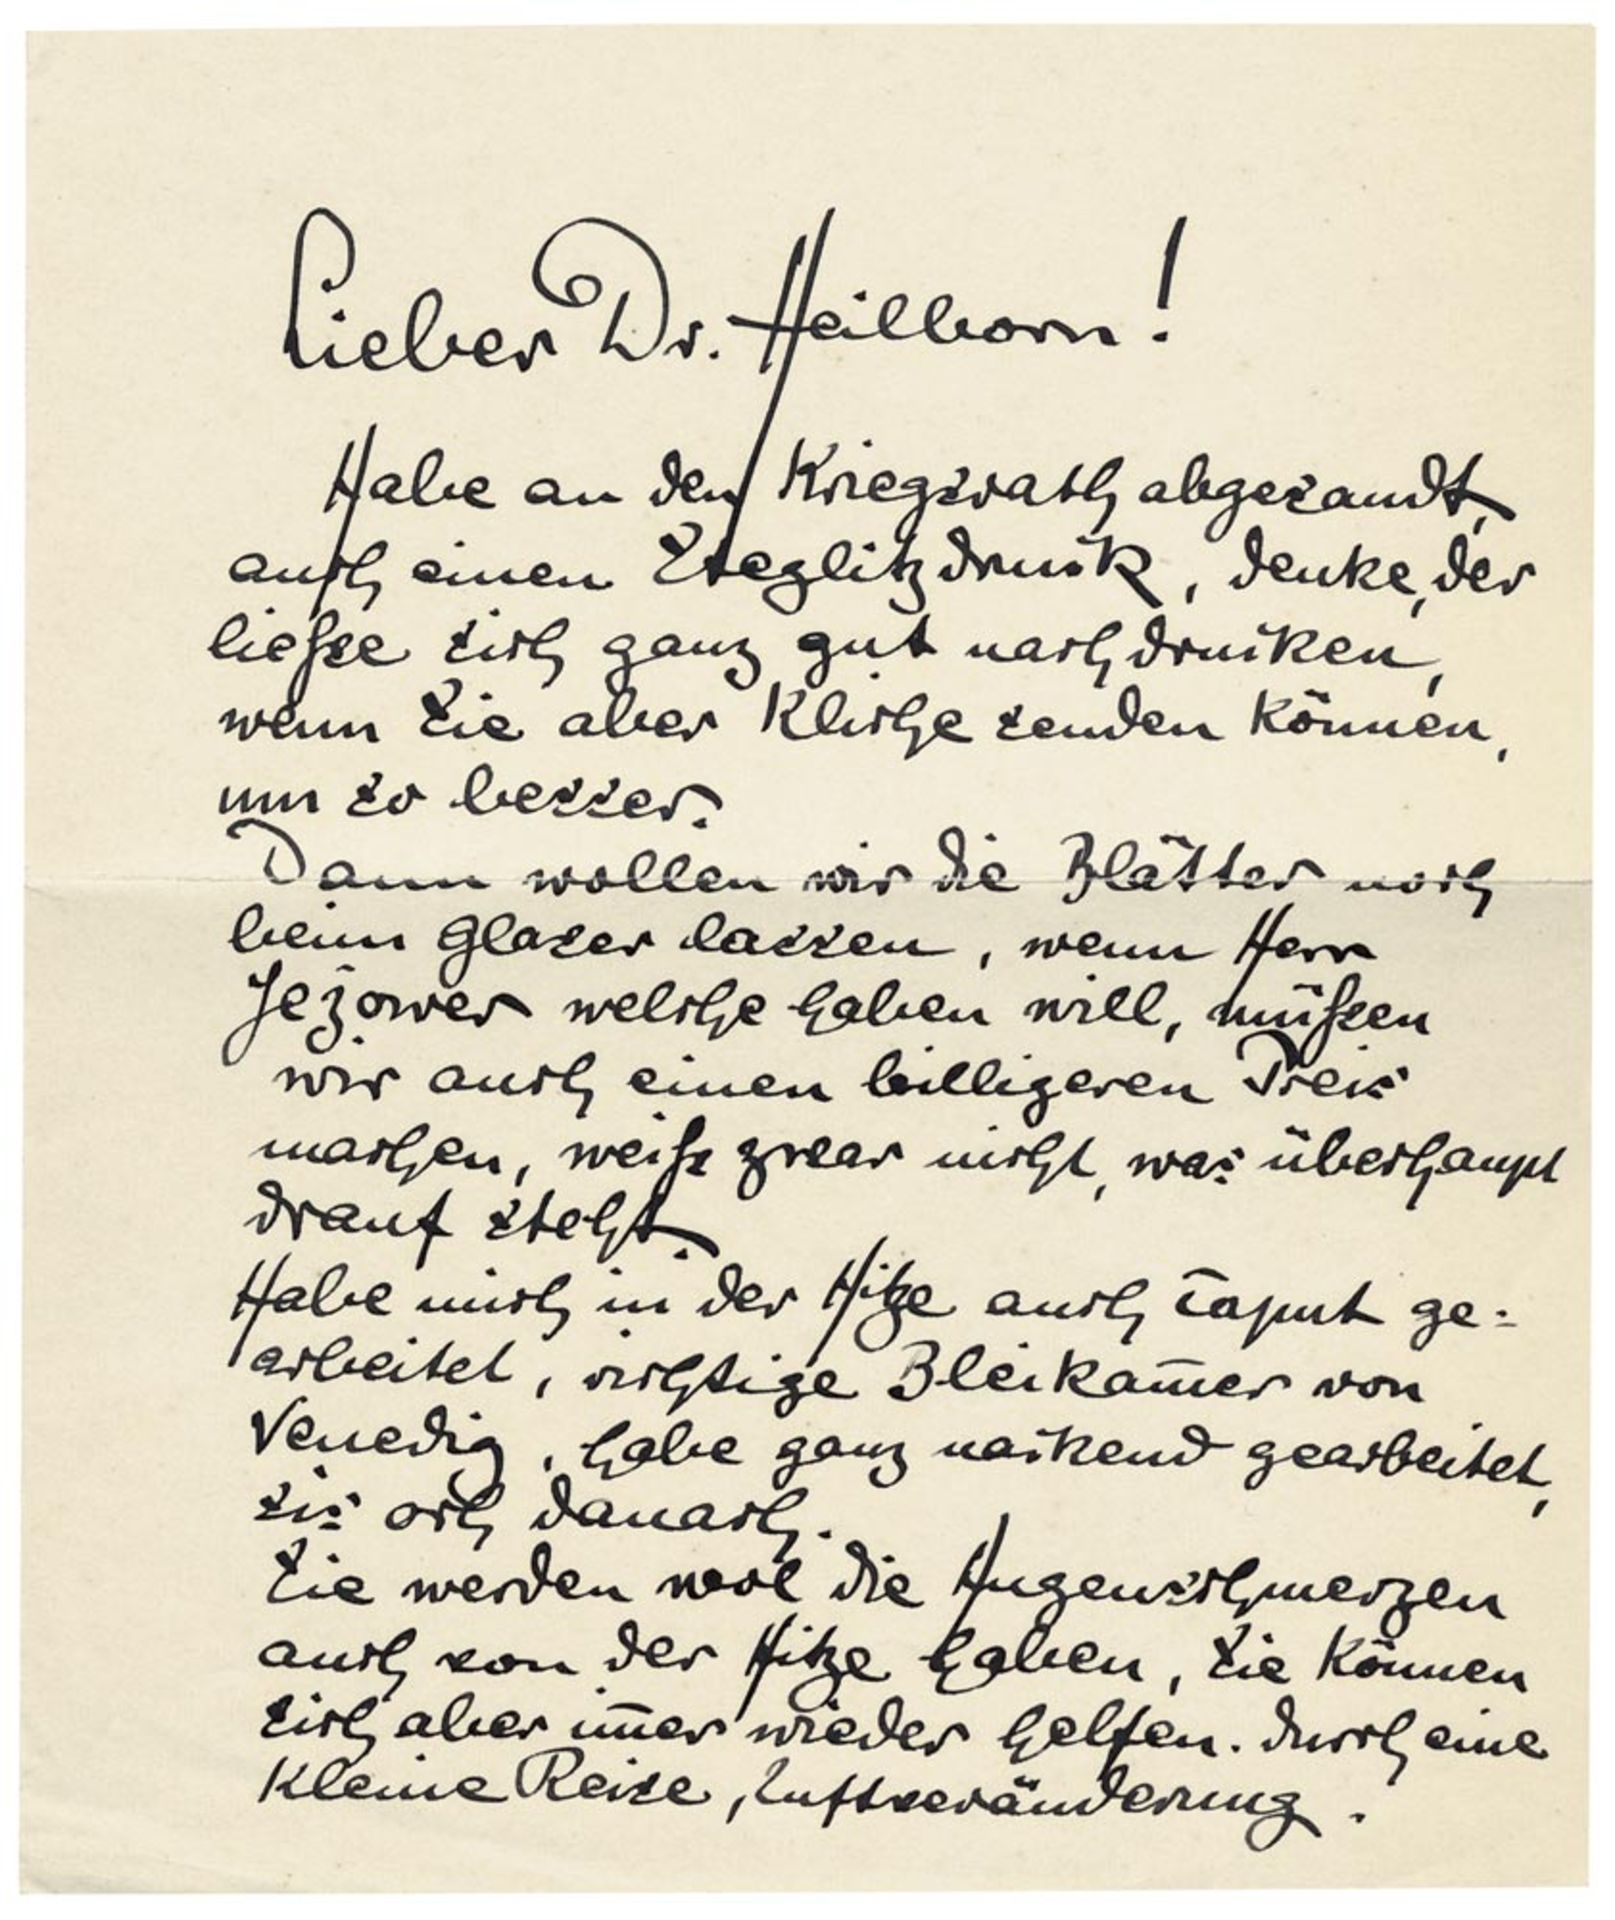 Lieber Dr. Heilborn!
Habe an den Kriegsrath abgesandt,
auch einen Steglitzdruck, denke, der
ließe sich ganz gut nachdrucken,
wenn Sie aber Klische senden können,
um so besser.
Dann wollen wir die Blätter noch
beim Glaser lassen, wenn Herr
Jezower welche haben will, müßen
wir auch einen billigeren Preis
machen, weiß zwar nicht, was überhaupt
drauf steht.
Habe mich in der Hitze auch caput ge-
arbeitet, richtige Bleikam̅er von
Venedig, habe ganz nackend gearbeitet,
sis och danach.
Sie werden wol die Augenschmerzen
auch von der Hitze haben, Sie können
sich aber im̅er wieder helfen. durch eine
kleine Reise, Luftveränderung.